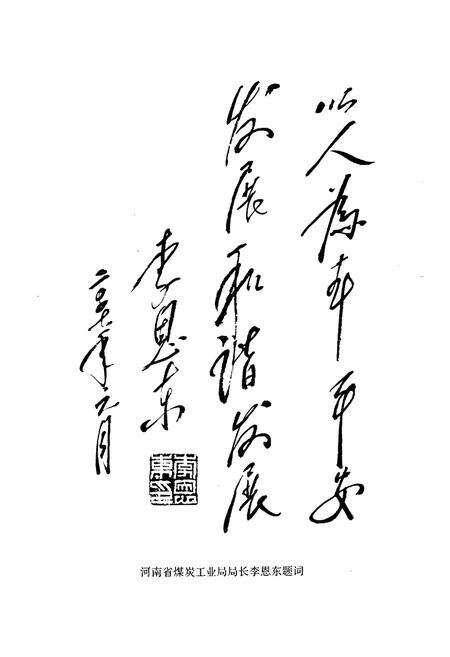 以人为本平安
发展和谐发展
李恩东
二〇〇七年元月
李恩东印
河南省煤炭工业局局长李恩东题词